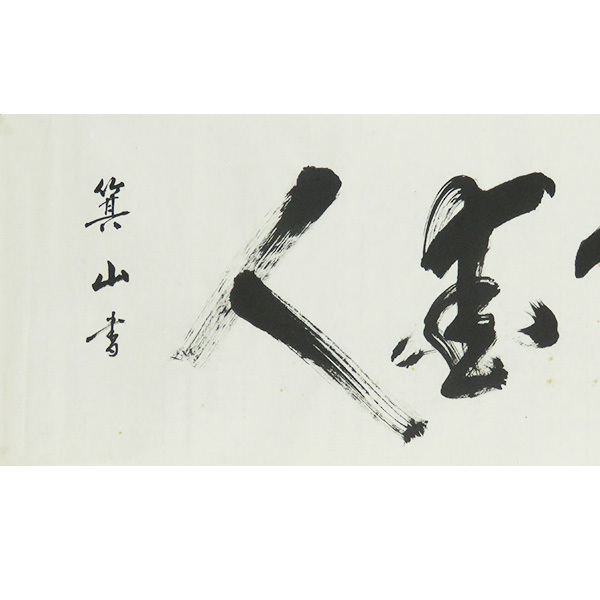 愛人
箕山書